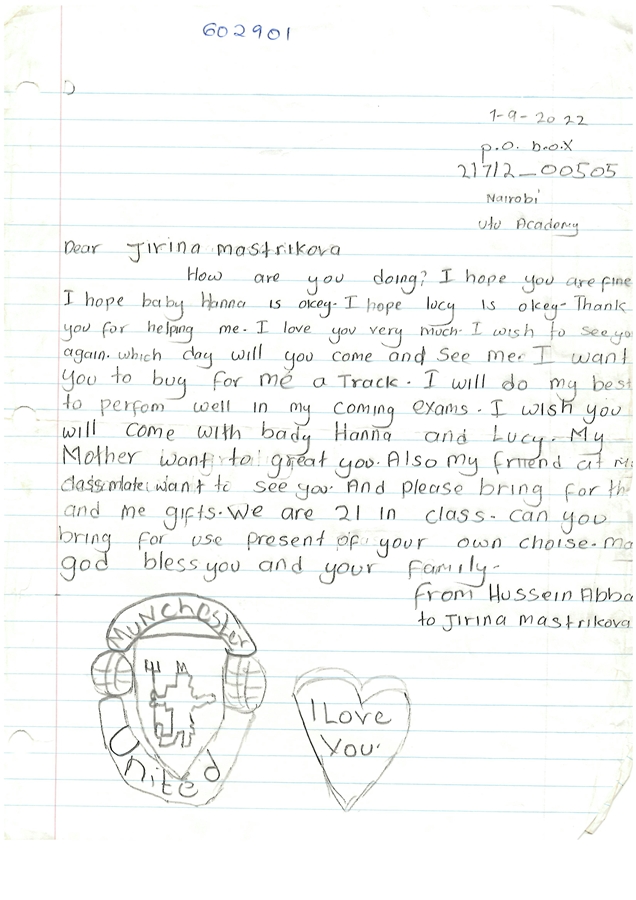 602901
1-9-2022
p.o. box
21712-00505
Nairobi
Utu Academy
Dear Jirina mastrikova
How are you doing? I hope you are fine
I hope baby Hanna is okey. I hope lucy is okey. Thank
you for helping me. I love you very much. I wish to see yo
again. which day will you come and see me. I want
you to bug for me a Track. I will do my best
to perfom well in my coming exams. I wish you
will come with bady Hanna and Lucy. My
Mother want to great you. Also my friend at M
classmate want to see you. And please bring for th
and me gifts. We are 21 in class. can you
bring for use present of your own choise. ma
god bless you and your family.
From Hussein Abba
to Jirina mastrikova
Munchester
United
I Love
You.